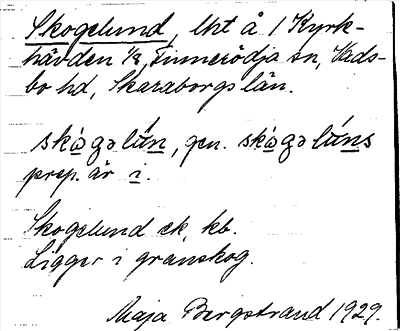 Skogelund, lht å 1 Kyrk-
hävden 1/8, Finnerödja sn, Vads-
bo hd, Skaraborgs län.
skògə lún, gen. skògə lúns
prep. är i.
Skogelund ek. kb.
Ligger i granskog.
Maja Bergstrand 1929.